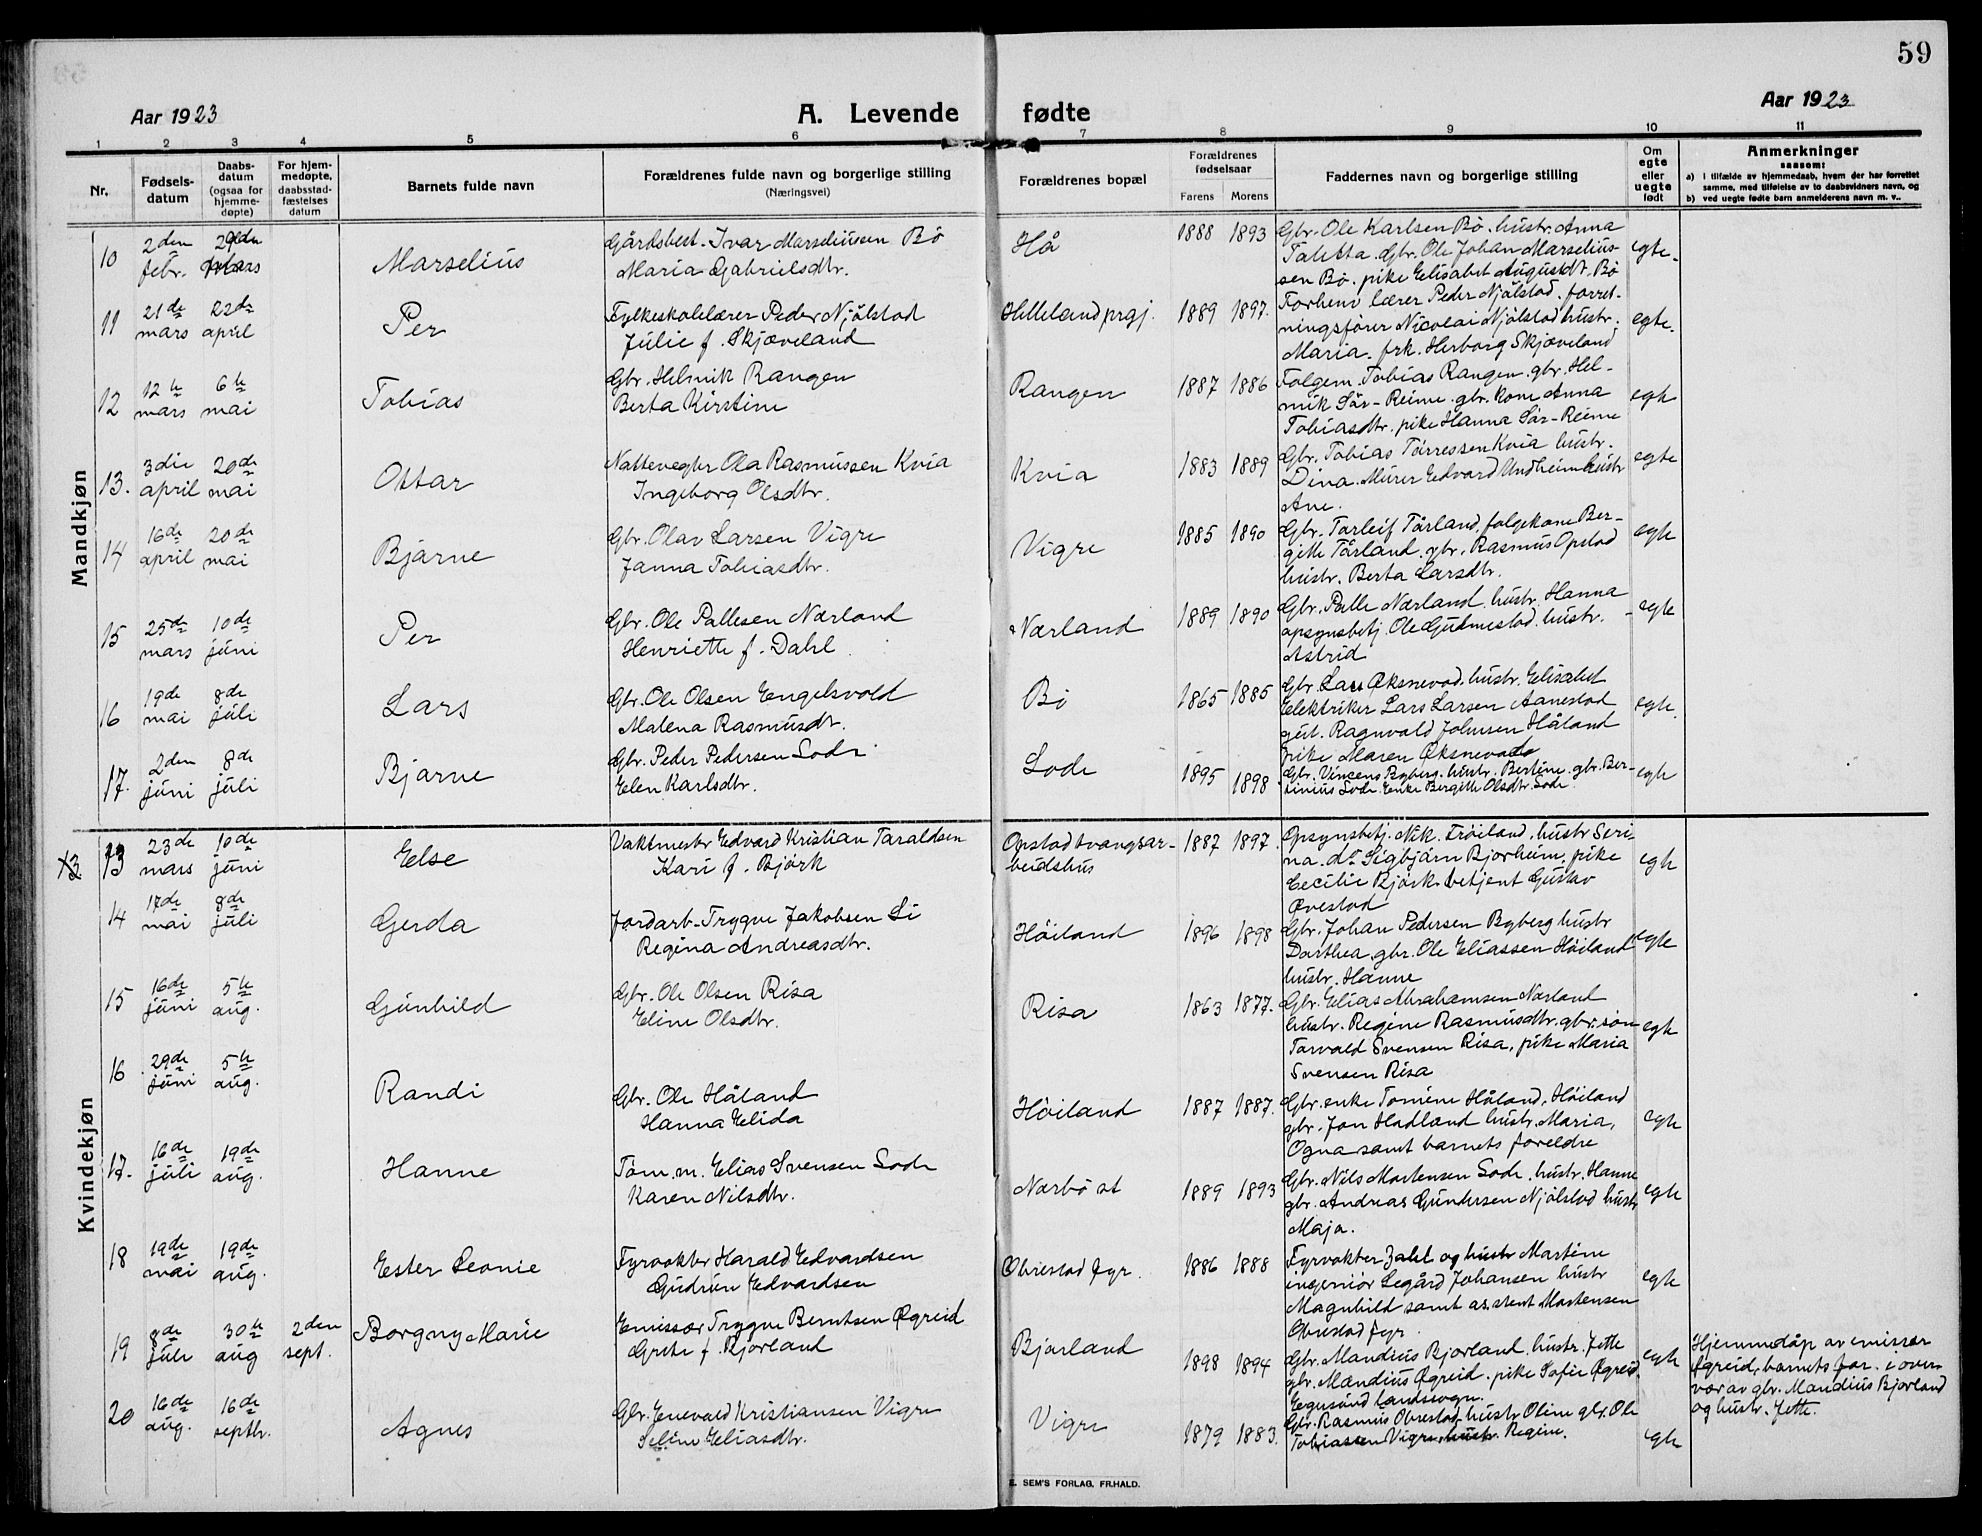 59
Aar 1923
A. Levende fødte
Aar 1923
1 2 3 4 5 6 7 8 9 10 11
Nr.
Fødsels-
datum
Daabs-
datum
(ogsaa for
hjemme-
døpte)
For hjem-
medøpte,
daabsstad-
fæstelses
datum
Barnets fulde navn
Forældrenes fulde navn og borgerlige stilling
(Næringsvei)
Forældrenes bopæl
Forældrenes
fødselsaar
Farens Morens
Faddernes navn og borgerlige stilling
Om
egte
eller
uegte
født
Anmerkninger
saasom:
a) i tilfælde av hjemmedaab, hvem der har forrettet
samme, med tilføielse av to daabsvidners navn, og
b) ved uegte fødte barn anmelderens navn m. v..
Mandkjøn
10 2den febr. mars Marselius
Gårdsbest. Ivar Marseliussen Bø
Maria Gabrielsdtr.
Hå 1888 1893
Gbr. Ole Karlsen Bø. hustr. Anna
Taletta. Gbr. Ole Johan Marselius-
sen Bø. pike Elisabet Augustdt. Bø
egte.
11 21de mars 22de april Per
Fylkeskolelærer Peder Njølstad
Julie f. Skjæveland
Helleland prgj. 1889 1897.
Forhenv lærer Peder Njølstad. forret-
ningsfører Nicolai Njølstad hustr.
Maria. frk. Herborg Skjæveland
egte.
12 12te mars 6te mai Tobias
Gbr. Helmik Rangen
Berta Kirstine
Rangen 1887 1886
Folgem. Tobias Rangen. gbr. Hel-
mik Sør-Reime. gbr. kone Anna
Tobiasdtr. pike Hanna Sør-Reime
egte
13. 3die april 20de mai Ottar
Nattevegtr Ola Rasmussen Kvia
Ingeborg Olsdtr.
Kvia 1883 1889
Gbr. Tobias Tørressen Kvia hustr.
Dina. Murer Edvard Undheim hustr
Ane.
egte
14 16de april 20de mai Bjarne
Gbr. Olav Larsen Vigre
Janna Tobiasdtr.
Vigre 1885 1890
Gbr. Torleif Tårland folgekone Ber-
gitte Tårland. gbr. Rasmus Opstad
hustr. Berta Larsdtr.
egte
15 25de mars 10de juni Per
Gbr. Ole Pallesen Nærland
Henriette f. Dahl
Nærland 1889 1890
Gbr. Palle Nærland. hustr. Hanna
opsynsbetj. Ole Gudmestad. hustr.
Astrid
egte
16 19de mai 8de juli Lars
Gbr. Ole Olsen Engelsvold
Malena Rasmusdtr.
Bø 1865 1885
Gbr. Lars Øksnevad. hustr. Elisabet
Elektriker Lars Larsen Aanestad
gut. Ragnvald Johnsen Håland
pike Maren Øksnevade
egte.
17. 2den juni 8de juli Bjarne
Gbr. Peder Pedersen Lode
Elen Karlsdtr.
Lode 1895 1898
Gbr. Vincens Byberg. hustr. Bertine. gbr. Ber-
tinius Lode. Enke Bergitte Olsdtr. Lode.
egte
Kvindekjøn
13 23de mars 10de juni Else
Vaktmester Edvard Kristian Taraldsen
Kari f. Bjørk
Opstad tvangsar-
beidshus
1887 1897.
Opsynsbetj. Nik. Trøiland, hustr Seri-
na. do Sigbjørn Bjorheim. pike
Cecilie Bjørk. betjent Gustav
Ovestad
egte
14 17de mai 8de juli Gerda
Jordarb. Trygve Jakobsen Li
Regina Andreasdtr.
Høiland 1896 1898
Gbr. Johan Pedersen Byberg hustr
Dorthea. gbr. Ole Eliassen Høiland
hustr. Hanne
egte
15 16de juni 5te aug. Gunhild
Gbr. Ole Olsen Risa
Eline Olsdtr.
Risa 1863 1877.
Gbr. Elias Abrahamsen Nærland
hustr. Regine Rasmusdtr. gbr. søn
Torvald Svensen Risa, pike Maria
Svensen Risa
egte
16 29de juni 5te aug. Randi
Gbr. Ole Håland
Hanna Elida
Høiland 1887 1887.
Gbr. enke Tomine Håland, Høiland
gbr. Jon Hadland hustr. Maria,
Ogna samt barnets foreldre
egte
17. 16de juli 19de aug. Hanne
Tøm. m. Elias Svensen Lode
Karen Nilsdtr.
Nærbø st 1889 1893
Gbr. Nils Mortensen Lode. hustr. Hanne
gbr. Andreas Gundersen Njølstad hustr
Maja.
egte
18 19de mai 19de aug. Ester Leonie
Fyrvokter Harald Edvardsen
Gudrun Edvardsen
Obrestad fyr. 1886 1888
Fyrvokter Zahl og hustr Martine
ingeniør Legård Johansen hustr
Magnhild samt assistent Mortensen
Obrestad fyr.
egte
19 8de juli 30te aug 2den sept. Borgny Marie
Emissær Trygve Berntsen Øgreid
Grete f. Bjorland
Bjorland 1898 1894
Gbr. Mandius Bjorland. hustr. Jette
gbr. Mandius Øgreid. pike Sofie Øgreid
Egersund landsogn.
egte
Hjemmedåp av emissær
Øgreid, barnets far. i over-
vær av gbr. Mandius Bjorland
og hustr. Jette.
20 16de aug. 16de septbr. Agnes
Gbr. Enevald Kristiansen Vigre
Seline Eliasdtr.
Vigre 1879 1883.
Gbr. Rasmus Obrestad hustr Oline gbr. Ole
Tobiassen Vigre. hustr. Regine.
egte
E. SEM'S FORLAG, FR.HALD.